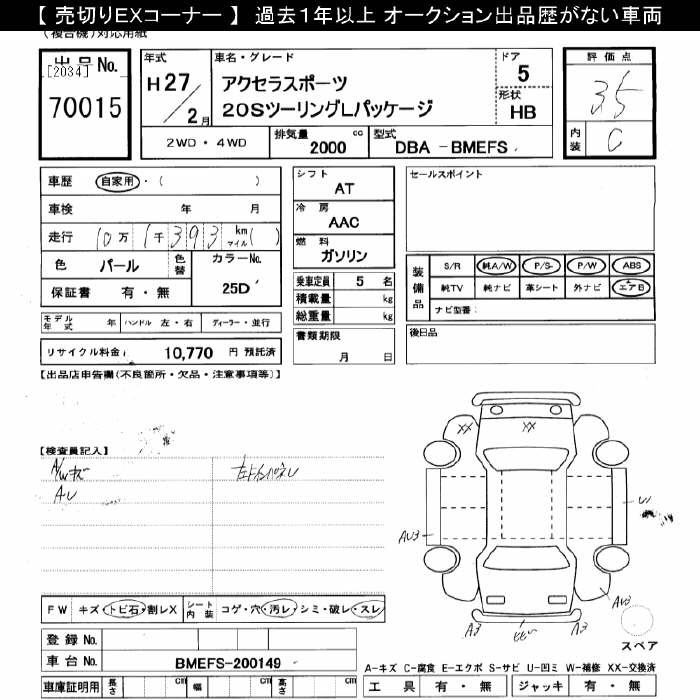 【 売切りEXコーナー 】 過去１年以上 オークション出品歴がない車両
(複合機)対応用紙
出品No.
[2034]
70015
年式
H27/2月
車名・グレード
アクセラスポーツ
20SツーリングLパッケージ
ドア
5
形状
HB
2WD・4WD
排気量
2000 cc
型式
DBA - BMEFS
評価点
3.5
内装
C
車歴 自家用・( )
車検 年 月
走行 10万1千393 km マイル( )
色 パール
色替
カラーNo.
25D
保証書 有・無
モデル年式 年
ハンドル 左・右
ディーラー・並行
リサイクル料金 10,770 円 預託済
シフト
AT
冷房
AAC
燃料
ガソリン
乗車定員 5 名
積載量 kg
総重量 kg
書類期限
月 日
セールスポイント
装備品
S/R 純A/W P/S P/W ABS
純TV 純ナビ 革シート 外ナビ エアB
ナビ型番:
後日品
【出品店申告欄(不良箇所・欠品・注意事項等)】
【検査員記入】
A/Wキズ
AU
XX XX
U1
AU3
AU3
A3
A3
スペア
FW キズ・トビ石・割レX
シート内装 コゲ・穴・汚レ・シミ・破レ・スレ
登録 No.
車台 No. BMEFS-200149
車庫証明用 長さ cm 幅 cm 高さ cm
A-キズ C-腐食 E-エクボ S-サビ U-凹ミ W-補修 XX-交換済
工具 有・無 ジャッキ 有・無